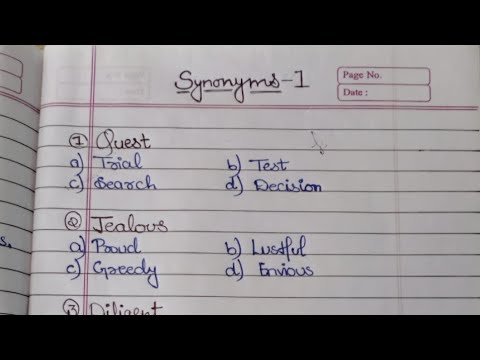 Synonyms-1
Page No.
Date :
① Quest
a) Trial b) Test
c) Search d) Decision
② Jealous
a) Proud b) Lustful
c) Greedy d) Envious
③ Diligent
s.